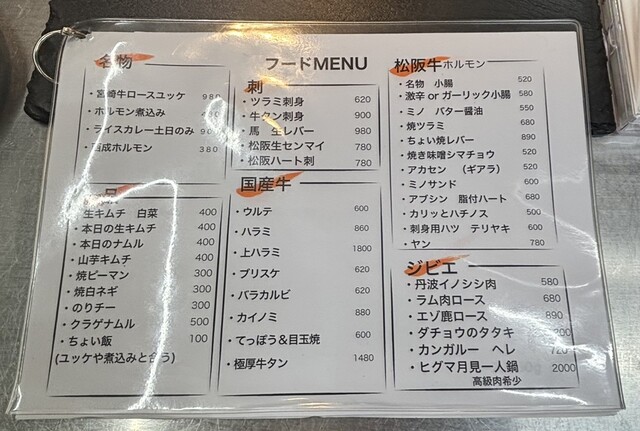 フードMENU
名物
・宮崎牛ロースユッケ 980
・ホルモン煮込み
・ライスカレー土日のみ
・西成ホルモン 380
品
生キムチ 白菜 400
・本日の生キムチ 400
・本日のナムル 400
・山芋キムチ 400
・焼ピーマン 300
・焼白ネギ 300
・のりチー 300
・クラゲナムル 500
・ちょい飯 100
(ユッケや煮込みと合う)
刺
・ツラミ刺身 620
・牛タン刺身 900
・馬 生レバー 980
・松阪生センマイ 780
・松阪ハート刺 780
国産牛
・ウルテ 600
・ハラミ 860
・上ハラミ 1800
・ブリスケ 620
・バラカルビ 620
・カイノミ 880
・てっぽう&目玉焼 600
・極厚牛タン 1480
松阪牛ホルモン
・名物 小腸 520
・激辛 or ガーリック小腸 580
・ミノ バター醤油 550
・焼ツラミ 680
・ちょい焼レバー 890
・焼き味噌シマチョウ 520
・アカセン (ギアラ) 520
・ミノサンド 600
・アブシン 脂付ハート 680
・カリッとハチノス 500
・刺身用ハツ テリヤキ 600
・ヤン 780
ジビエ
・丹波イノシシ肉 580
・ラム肉ロース 680
・エゾ鹿ロース 890
・ダチョウのタタキ
・カンガルー ヘレ 720
・ヒグマ月見一人鍋 2000
高級肉希少